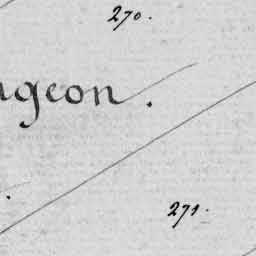 270.
ngeon.
271.